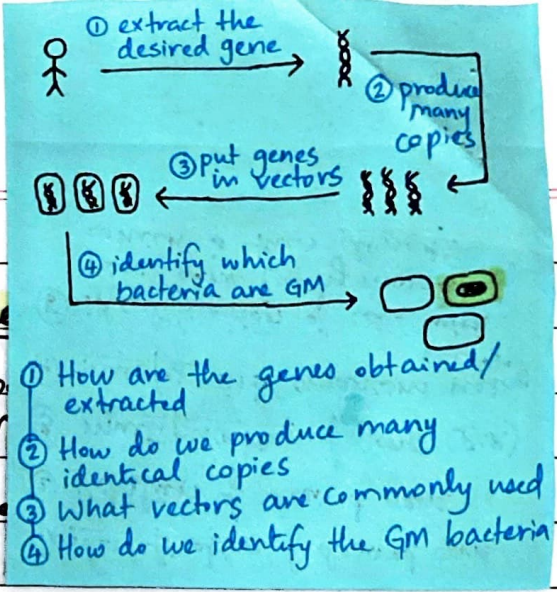 ① extract the
desired gene
② produce
many
copies
③ put genes
in vectors
④ identify which
bacteria are GM
① How are the genes obtained/
extracted
② How do we produce many
identical copies
③ What vectors are commonly used
④ How do we identify the GM bacteria